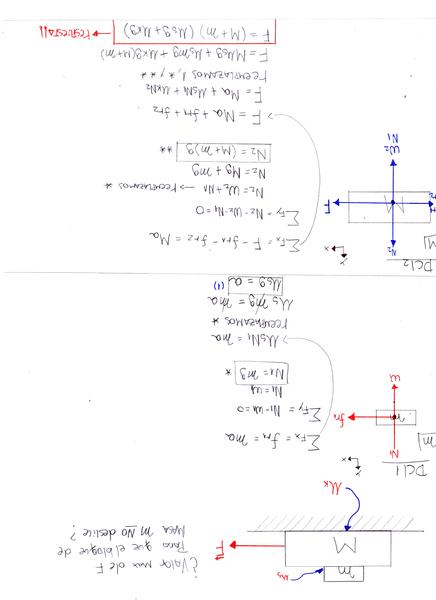 ¿Valor max de F
Para que el bloque de
Masa m No deslice?
m
μs
M
F
μk
DCL1
m]
y
x
N1
m
fr1
W1
ΣFx = fr1 = ma
ΣFy = N1-W1=0
N1=W1
N1=mg *
μsN1 = ma
reemplazamos *
μsmg = ma
μsg = a (1)
DCL2
M]
y
x
N2
M
F
W2
N1
ΣFx = F - fr1 - fr2 = Ma
ΣFy = N2-W2-N1=0
N2=W2+N1 → reemplazamos *
N2=Mg + mg
N2=(M+m)g **
F = Ma + fr1 + fr2
F = Ma + μsN1 + μkN2
reemplazamos 1, *, y **
F= Mμsg + μsmg + μkg(M+m)
F= (M+m)(μsg + μkg) → respuesta